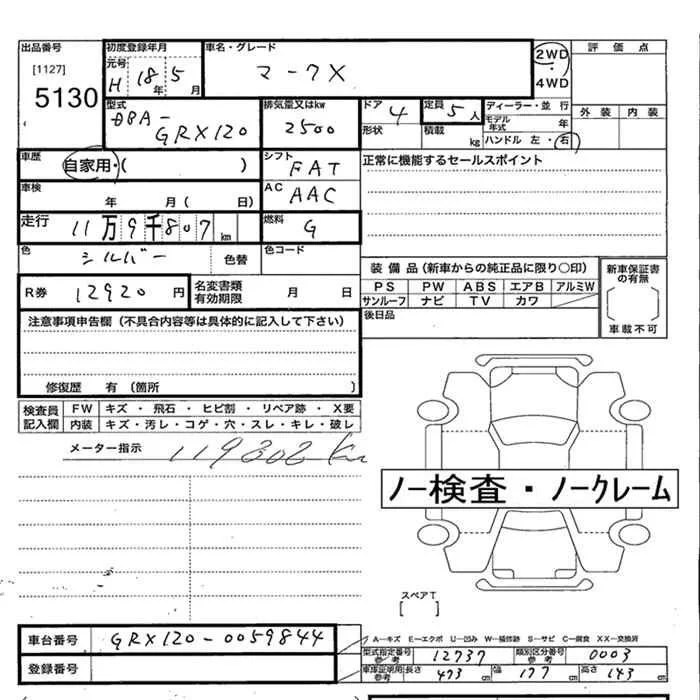 出品番号 [1127] 5130
初度登録年月 元号 H 18年 5月
車名・グレード マークX
2WD・4WD
評価点
外装 内装
型式 DBA-GRX120
排気量又はkw 2500
ドア 4 形状
定員 5人 積載 kg
ディーラー・並行
モデル年式 年
ハンドル 左・右
車歴 自家用・( )
シフト FAT
正常に機能するセールスポイント
車検 年 月( 日)
AC AAC
走行 11万9千807km
燃料 G
色 シルバー 色替
色コード
装備品(新車からの純正品に限り○印)
PS PW ABS エアB アルミW
サンルーフ ナビ TV カワ
新車保証書の有無
[ ]
車載不可
R券 12920円
名変書類有効期限 月 日
後日品
注意事項申告欄(不具合内容等は具体的に記入して下さい)
修復歴 有(箇所 )
検査員記入欄
FW キズ・飛石・ヒビ割・リペア跡・X要
内装 キズ・汚レ・コゲ・穴・スレ・キレ・破レ
メーター指示 119808 km
ノー検査・ノークレーム
スペアT
[ ]
車台番号 GRX120-0059844
A-キズ E-エクボ U-凹み W-補修跡 S-サビ C-腐食 XX-交換済
型式指定番号 参考 12737 類別区分番号 参考 0003
登録番号
車庫証明用 参考 長さ 473cm 幅 177cm 高さ 143cm